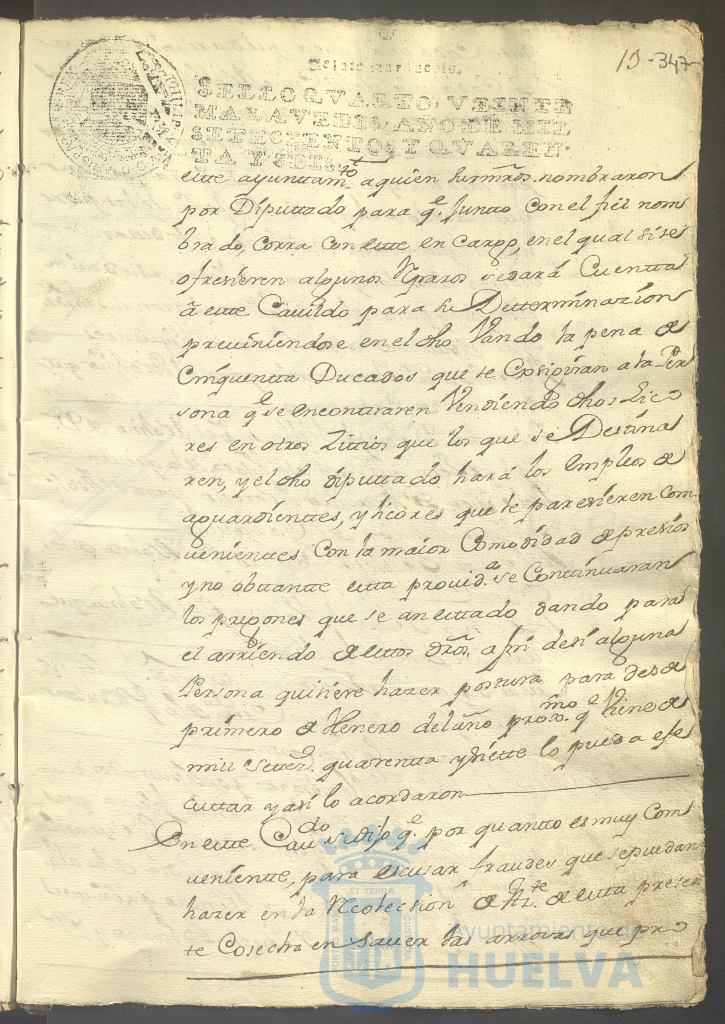 13-347
Veinte maravedis.
SELLO QVARTO, VEINTE
MARAVEDIS, AÑO DE MIL
SETECIENTOS Y QVAREN-
TA Y SEIS.
este ayuntamto. a quien sus mros. nombraron
por Diputtado para qe. Juntto con el fiel nom
brado, corra con estte en cargo, en el qual si se
ofresieren algunos Reparos se dará Cuentta
â estte Cauildo para su Detterminazion
preuiniendose en el dho Vando la pena de
Cinquentta Ducados que se Exsigiran a la Per
sona qe. se encontraren Vendiendo dhos Lico
res en otros Sittios que los que se Destina
ren, y el dho diputtado hará los Empleos de
aguardienttes, y licores que le paresieren com
uenienttes con la maior Comodidad de presios
y no obstantte estta prouida. se Continuaran
los pregones que se an esttado dando para
el arriendo de esttos dros. a fin de si alguna
Persona quisiere hazer posttura para desde
primero de Henero del año proxmo. qe. Viene de
mill settez. quarentta y siette lo pueda efe
cuttar y asi lo acordaron
En estte Caudo se dijo qe. por quantto es muy Com
uenientte, para escusar fraudes que se puedan
hazer en la Recolecsion de de estta presen
te Cosecha en sauer las arrouas que pro
Ayuntamiento de
HUELVA